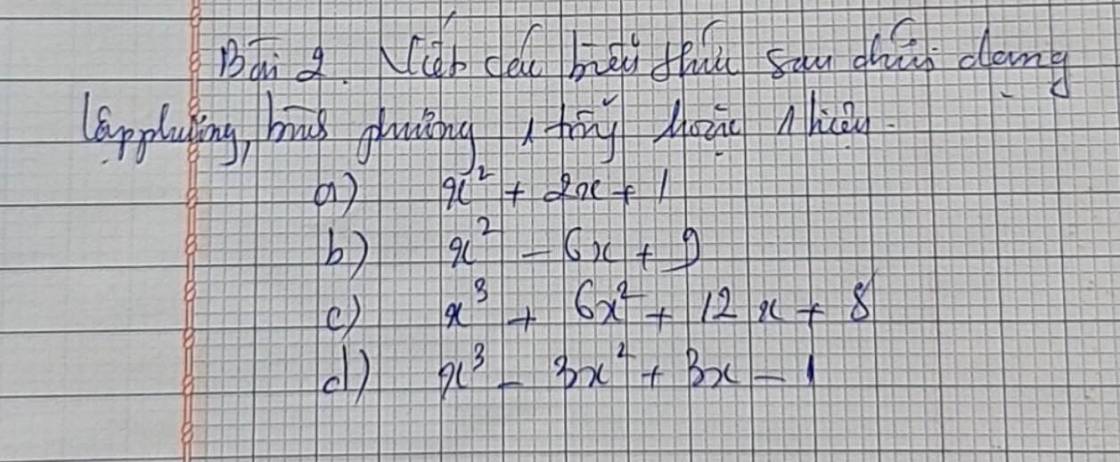 Bài 2. Viết các biểu thức sau dưới dạng
lập phương, bình phương 1 tổng hoặc 1 hiệu.
a) x² + 2x + 1
b) x² - 6x + 9
c) x³ + 6x² + 12x + 8
d) x³ - 3x² + 3x - 1